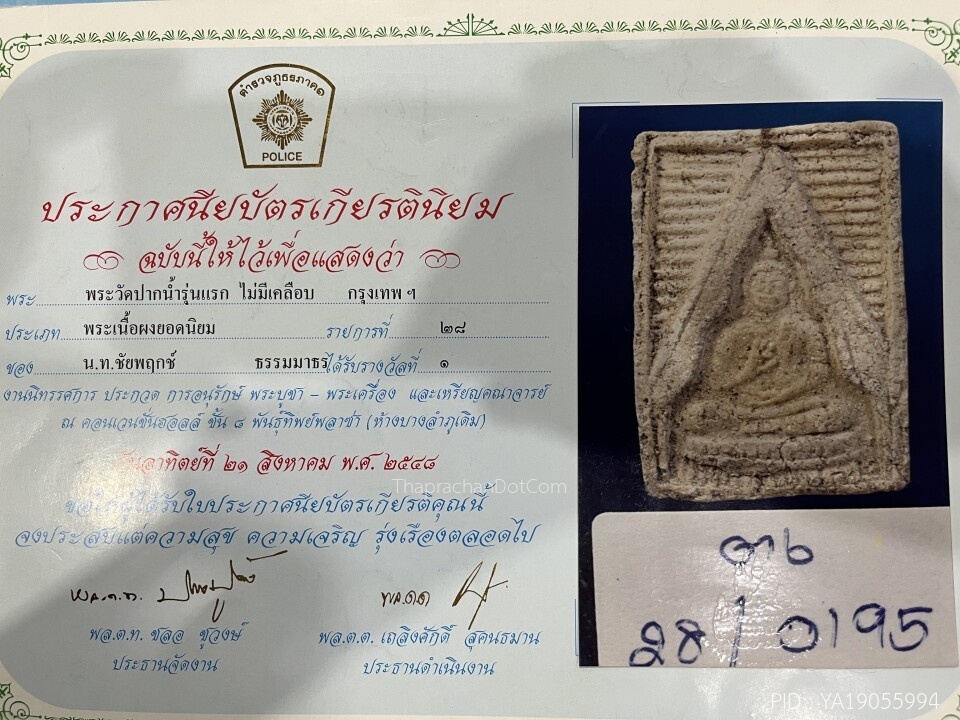 ตำรวจภูธรภาค๑
POLICE
ประกาศนียบัตรเกียรตินิยม
ฉบับนี้ให้ไว้เพื่อแสดงว่า
พระ พระวัดปากน้ำรุ่นแรก ไม่มีเคลือบ กรุงเทพฯ
ประเภท พระเนื้อผงยอดนิยม รายการที่ ๒๘
ของ น.ท.ชัยพฤกษ์ ธรรมมาธร ได้รับรางวัลที่ ๑
งานนิทรรศการ ประกวด การอนุรักษ์ พระบูชา – พระเครื่อง และเหรียญคณาจารย์
ณ คอนเวนชั่นฮอลล์ ชั้น ๘ พันธุ์ทิพย์พลาซ่า (ห้างบางลำภูเดิม)
วันอาทิตย์ที่ ๒๑ สิงหาคม พ.ศ. ๒๕๔๘
ThaprachanDotCom
ขอให้ผู้ได้รับใบประกาศนียบัตรเกียรติคุณนี้
จงประสบแต่ความสุข ความเจริญ รุ่งเรืองตลอดไป
พล.ต.ท.
พล.ต.ต.
พล.ต.ท. ชลอ ชูวงษ์
พล.ต.ต. เถลิงศักดิ์ สุคนธมาน
ประธานจัดงาน
ประธานดำเนินงาน
28/0195
PID : YA19055994